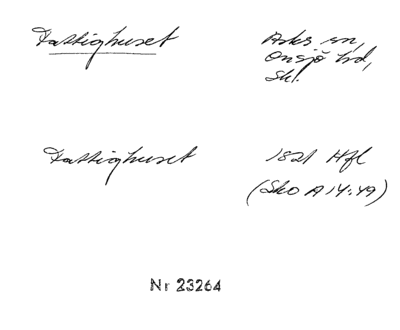 Fattighuset
Asks sn,
Onsjö hd,
Sk.
Fattighuset
1821 Hfl
(Sko A 14:49)
Nr 23264